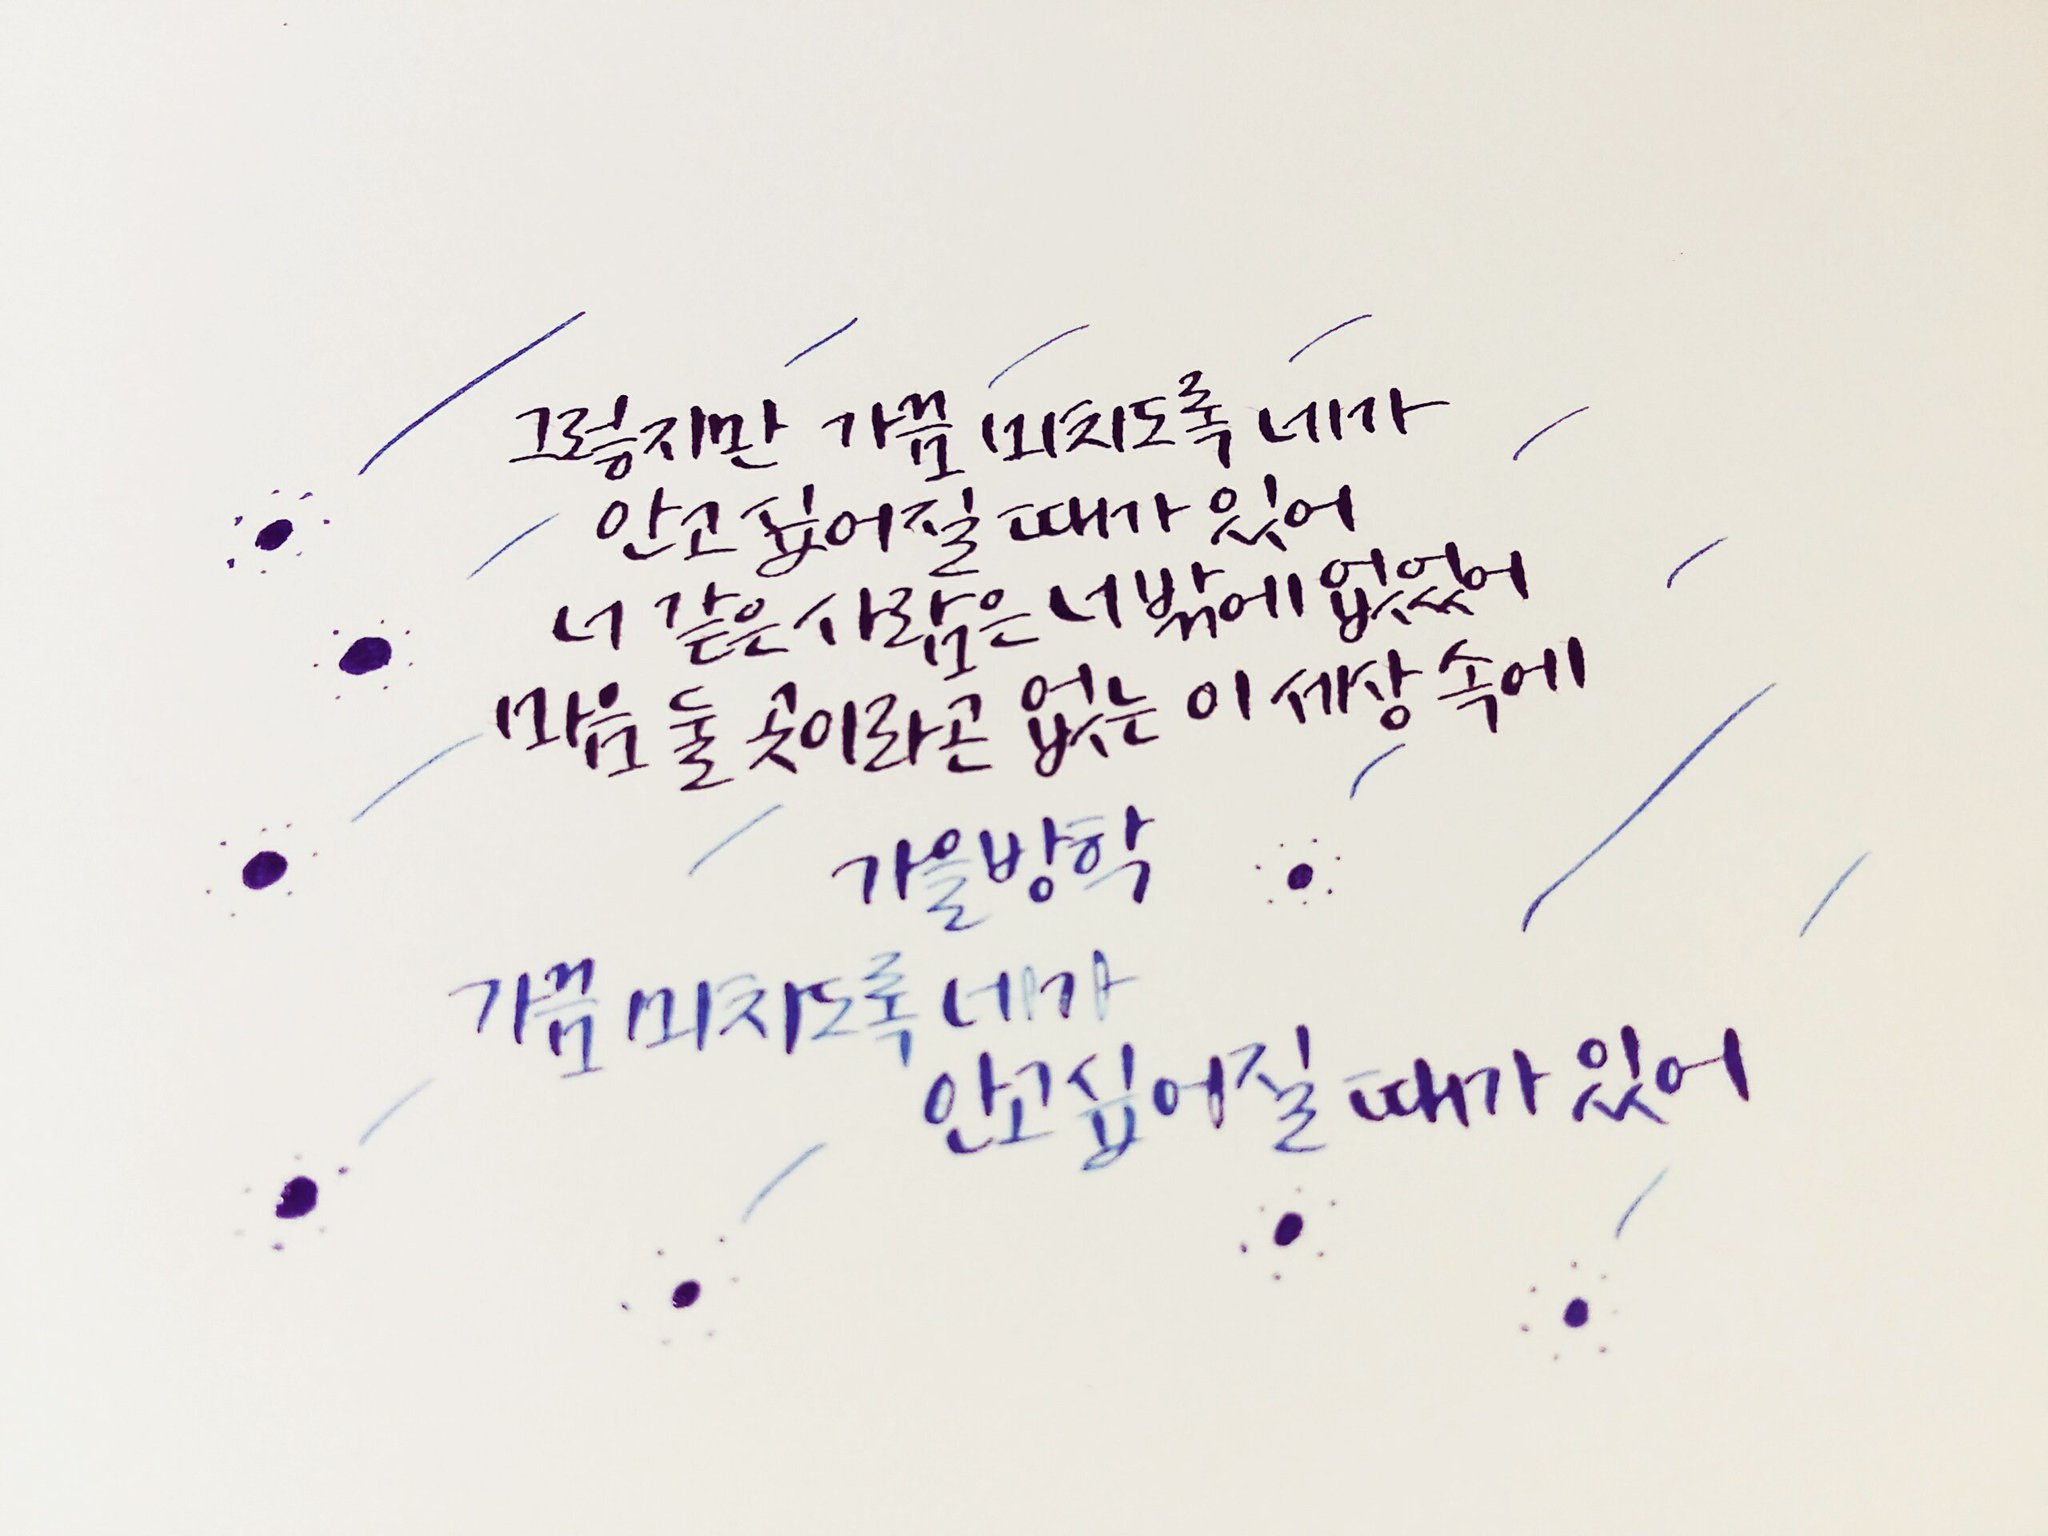 그렇지만 가끔 미치도록 네가
안고 싶어질 때가 있어
너 같은 사람은 너 밖에 없었어
마음 둘 곳이라곤 없는 이 세상 속에
가을방학
가끔 미치도록 네가
안고싶어질 때가 있어